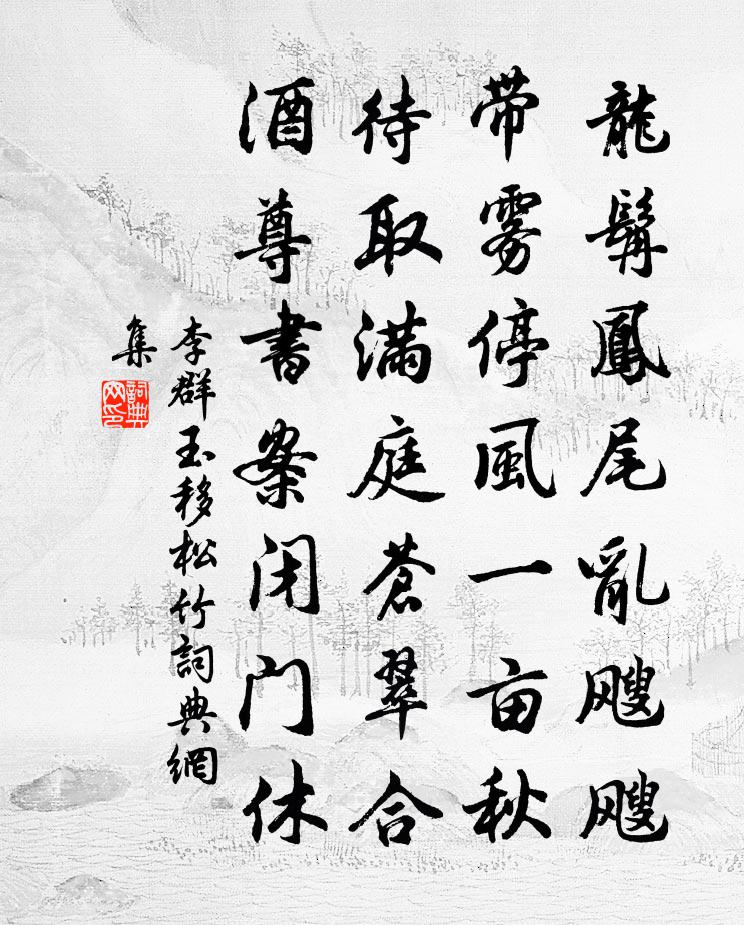 龍髯鳳尾亂颼颼
帶雾停風一亩秋
待取滿庭蒼翠合
酒尊書案闭门休
李群玉移松竹詞典網
集
詞典
网印